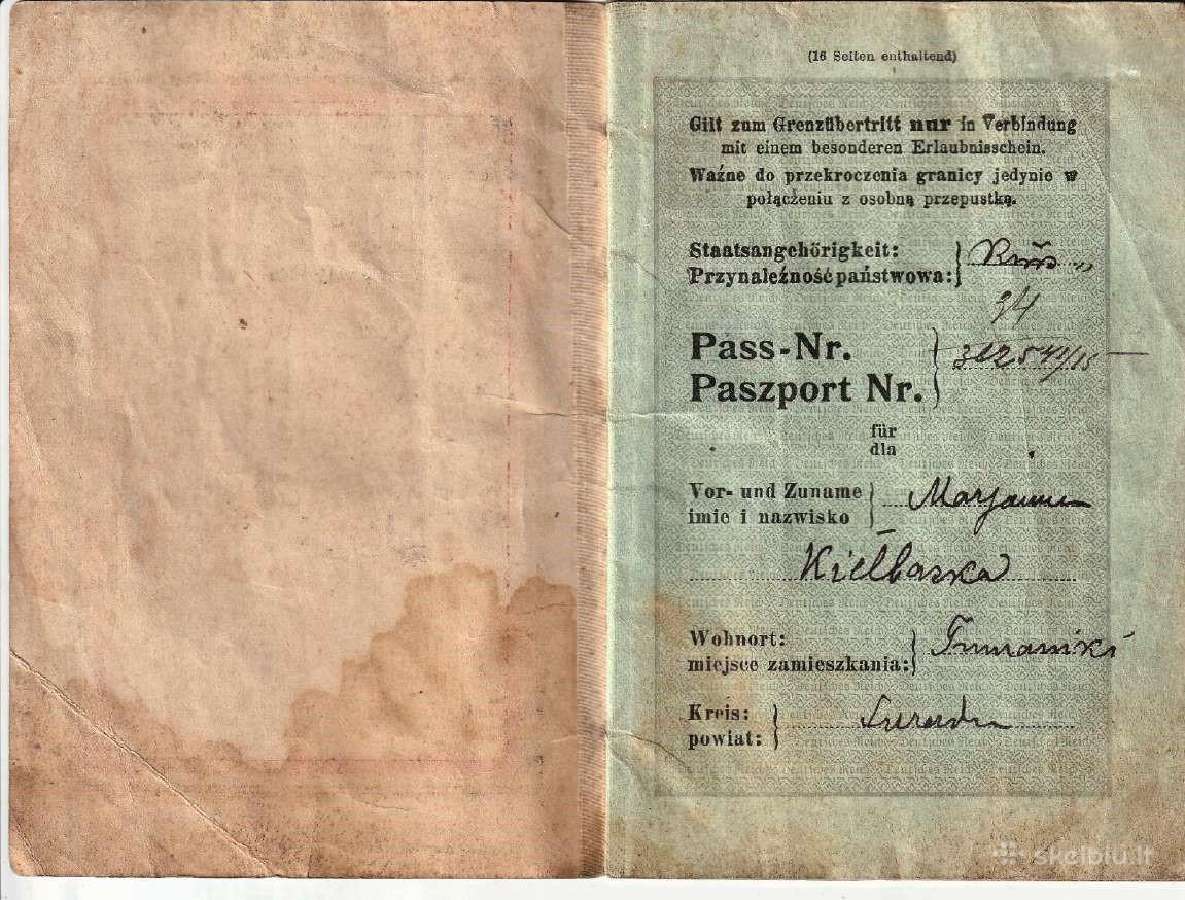 (16 Seiten enthaltend)
Gilt zum Grenzübertritt nur in Verbindung
mit einem besonderen Erlaubnisschein.
Ważne do przekroczenia granicy jedynie w
połączeniu z osobną przepustką.
Staatsangehörigkeit:
Przynależność państwowa:
34
Pass-Nr.
Paszport Nr.
für
dla
Vor- und Zuname
imie i nazwisko
Kiełbaska
Wohnort:
miejsce zamieszkania:
Kreis:
powiat:
skelbiu.lt